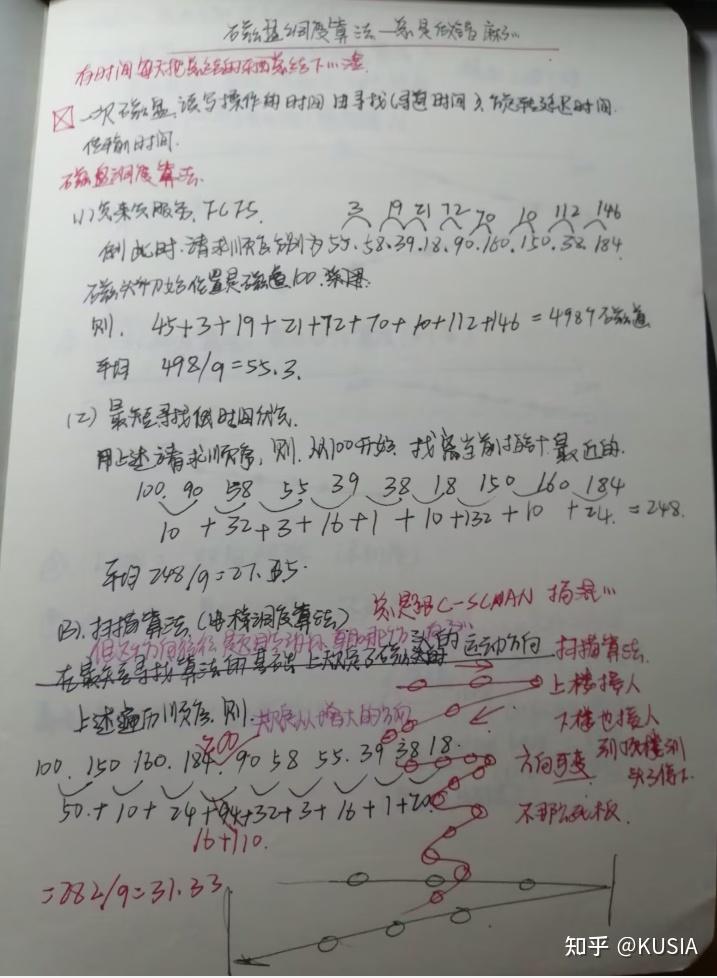 磁盘调度算法—总是做错 麻了…
有时间每天把总结的东西总结下…涩
一次磁盘读写操作的时间由寻找(寻道时间)、旋转延迟时间.
传输时间.
磁盘调度算法.
(1) 先来先服务. FCFS.
3 19 21 72 70 10 112 146
例 此时.请求顺序分别为55.58.39.18.90.160.150.38.184.
磁头初始位置是磁道100.采用
则. 45+3+19+21+72+70+10+112+146=498个磁道
平均 498/9=55.3.
(2) 最短寻找时间优先.
用上述请求顺序, 则. 从100开始. 找离当前 最近的.
100. 90 58 55 39 38 18 150 160 184
10 + 32+3+16+1 + 20+132+10 + 24. =248.
平均 248/9=27.55.
总是跟C-SCAN 搞混…
(3). 扫描算法. (电梯调度算法)
在最短寻找算法的基础上规定了磁头的运动方向
扫描算法.
上楼接人
上述遍历顺序. 则.
规定从增大的方向
下楼也接人
200
100. 150 160. 184. 90 58 55. 39 38 18.
方向可变
到顶楼到头了停下
50.+10+ 24 +94+32+3+16+1+20
不那么死板.
16+110.
=282/9=31.33
知乎 @KUSIA